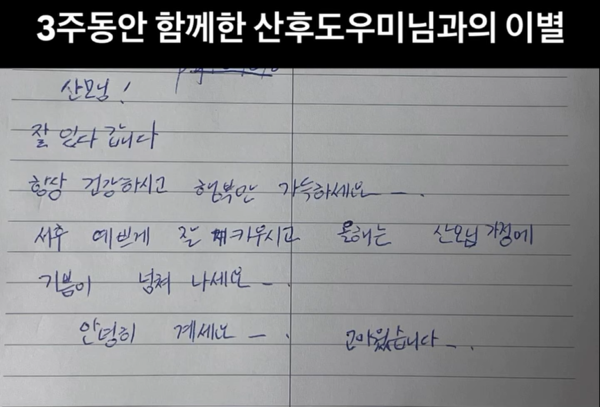 3주동안 함께한 산후도우미님과의 이별
산모님!
잘 있다 갑니다
항상 건강하시고 행복만 가득하세요 ㅡ.
서후 예쁘게 잘 키우시고 올해는 산모님 가정에
기쁨이 넘쳐 나세요 ㅡ.
안녕히 계세요 ㅡ. 고마웠습니다 ㅡ.